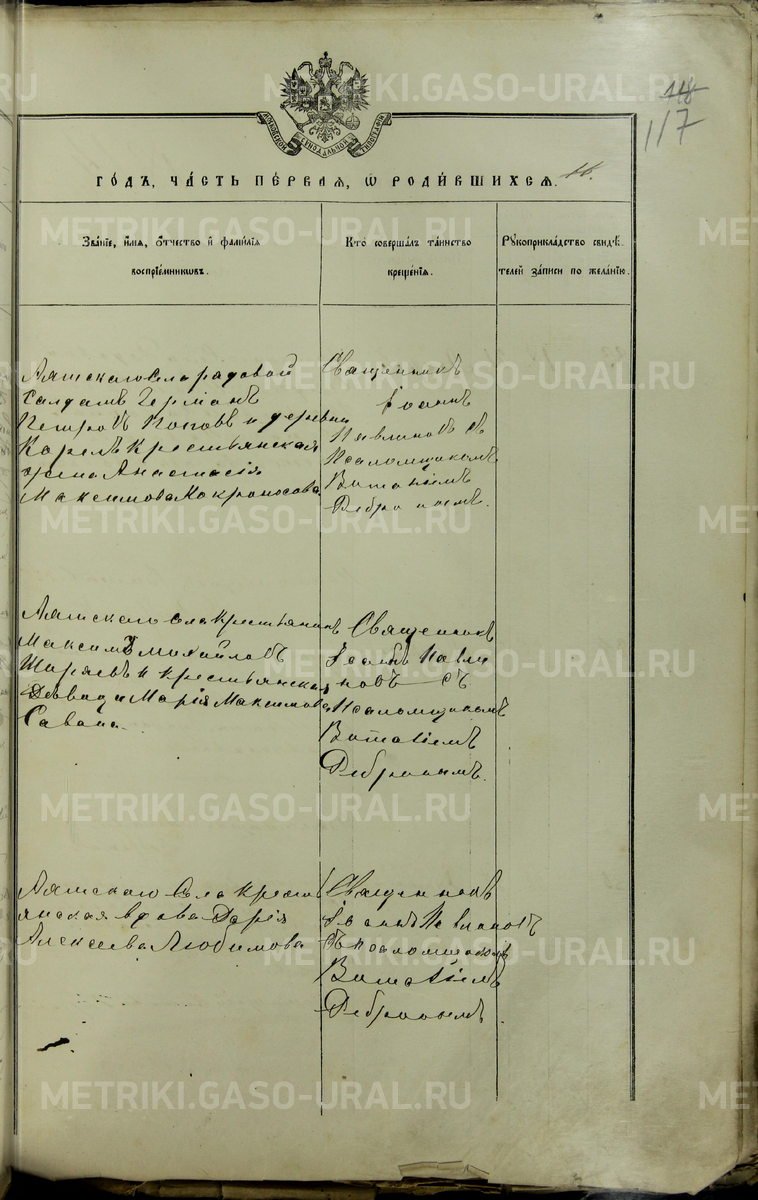 118
117
МОСКОВСКОЙ СѴНОДАЛЬНОЙ ТИПОГРАФІИ
ГО́ДЪ, ЧА́СТЬ ПЕ́РВАЯ, Ѡ РОДИ́ВШИХСЯ. 11.
Зва́нїе, и҆́мя, ѻ҆́тчество и҆ фами́лїя
воспрїе́мникѡвъ.
Кто̀ соверша́лъ та́инство
креще́нїя.
Рꙋкоприкла́дство свидѣ́-
телей за́писи по жела́нїю.
Аятскаго Села рядовой
Салдатъ Германъ
Петровъ Поповъ и деревни
Корелъ Крестьянская
жена Анастасія
Максимова Мокроносова
Священникъ
Іоаннъ
Павлиновъ съ
Псаломщикомъ
Виталіемъ
Ребриномъ.
Аятскаго села Крестьянинъ
Максимъ Михайловъ
Ширяевъ и крестьянская
Девица Марія Максимова
Савина
Священникъ
Іоаннъ Павли
новъ съ
Псаломщикомъ
Виталіемъ
Ребринымъ.
Аятскаго Села Кресть
янская вдова Дарія
Алексеева Любимова
Священникъ
Іоаннъ Павлиновъ
Съ псаломщикомъ
Виталіемъ
Ребринымъ
METRIKI.GASO-URAL.RU